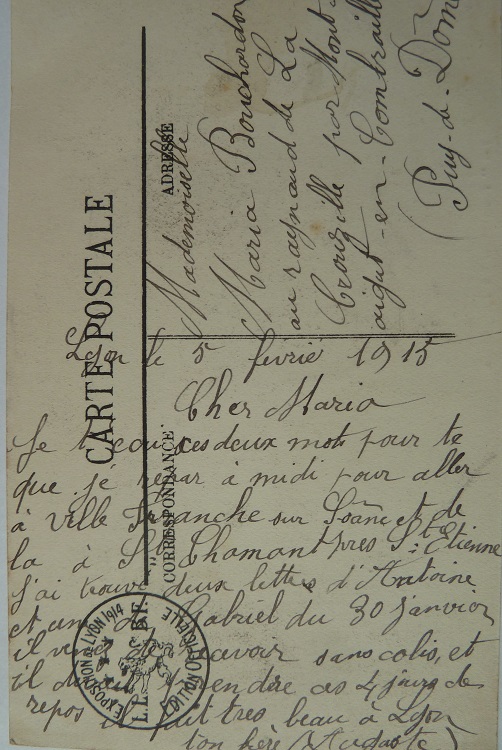 CARTE POSTALE
ADRESSE
Mademoiselle
Maria Bouchardon
au raynaud de La
Crouzille par Mont-
aigut-en-Combraille
(Puy-de-Dôme
CORRESPONDANCE
Lyon le 5 fevrier 1915
Cher Maria
Je ces deux mots pour te
que je repar à midi pour aller
à Ville Franche sur Saône et de
la à St Chamont pres St Etienne
j'ai trouvé deux lettres d'Antoine
et une de Gabriel du 30 janvier
il vient de recevoir sans colis, et
il prendre ces 4 jours de
repos il fait tres beau à Lyon
ton
EXPOSITION DE LYON 1914
OFFICIELLE
L.L. B.F.